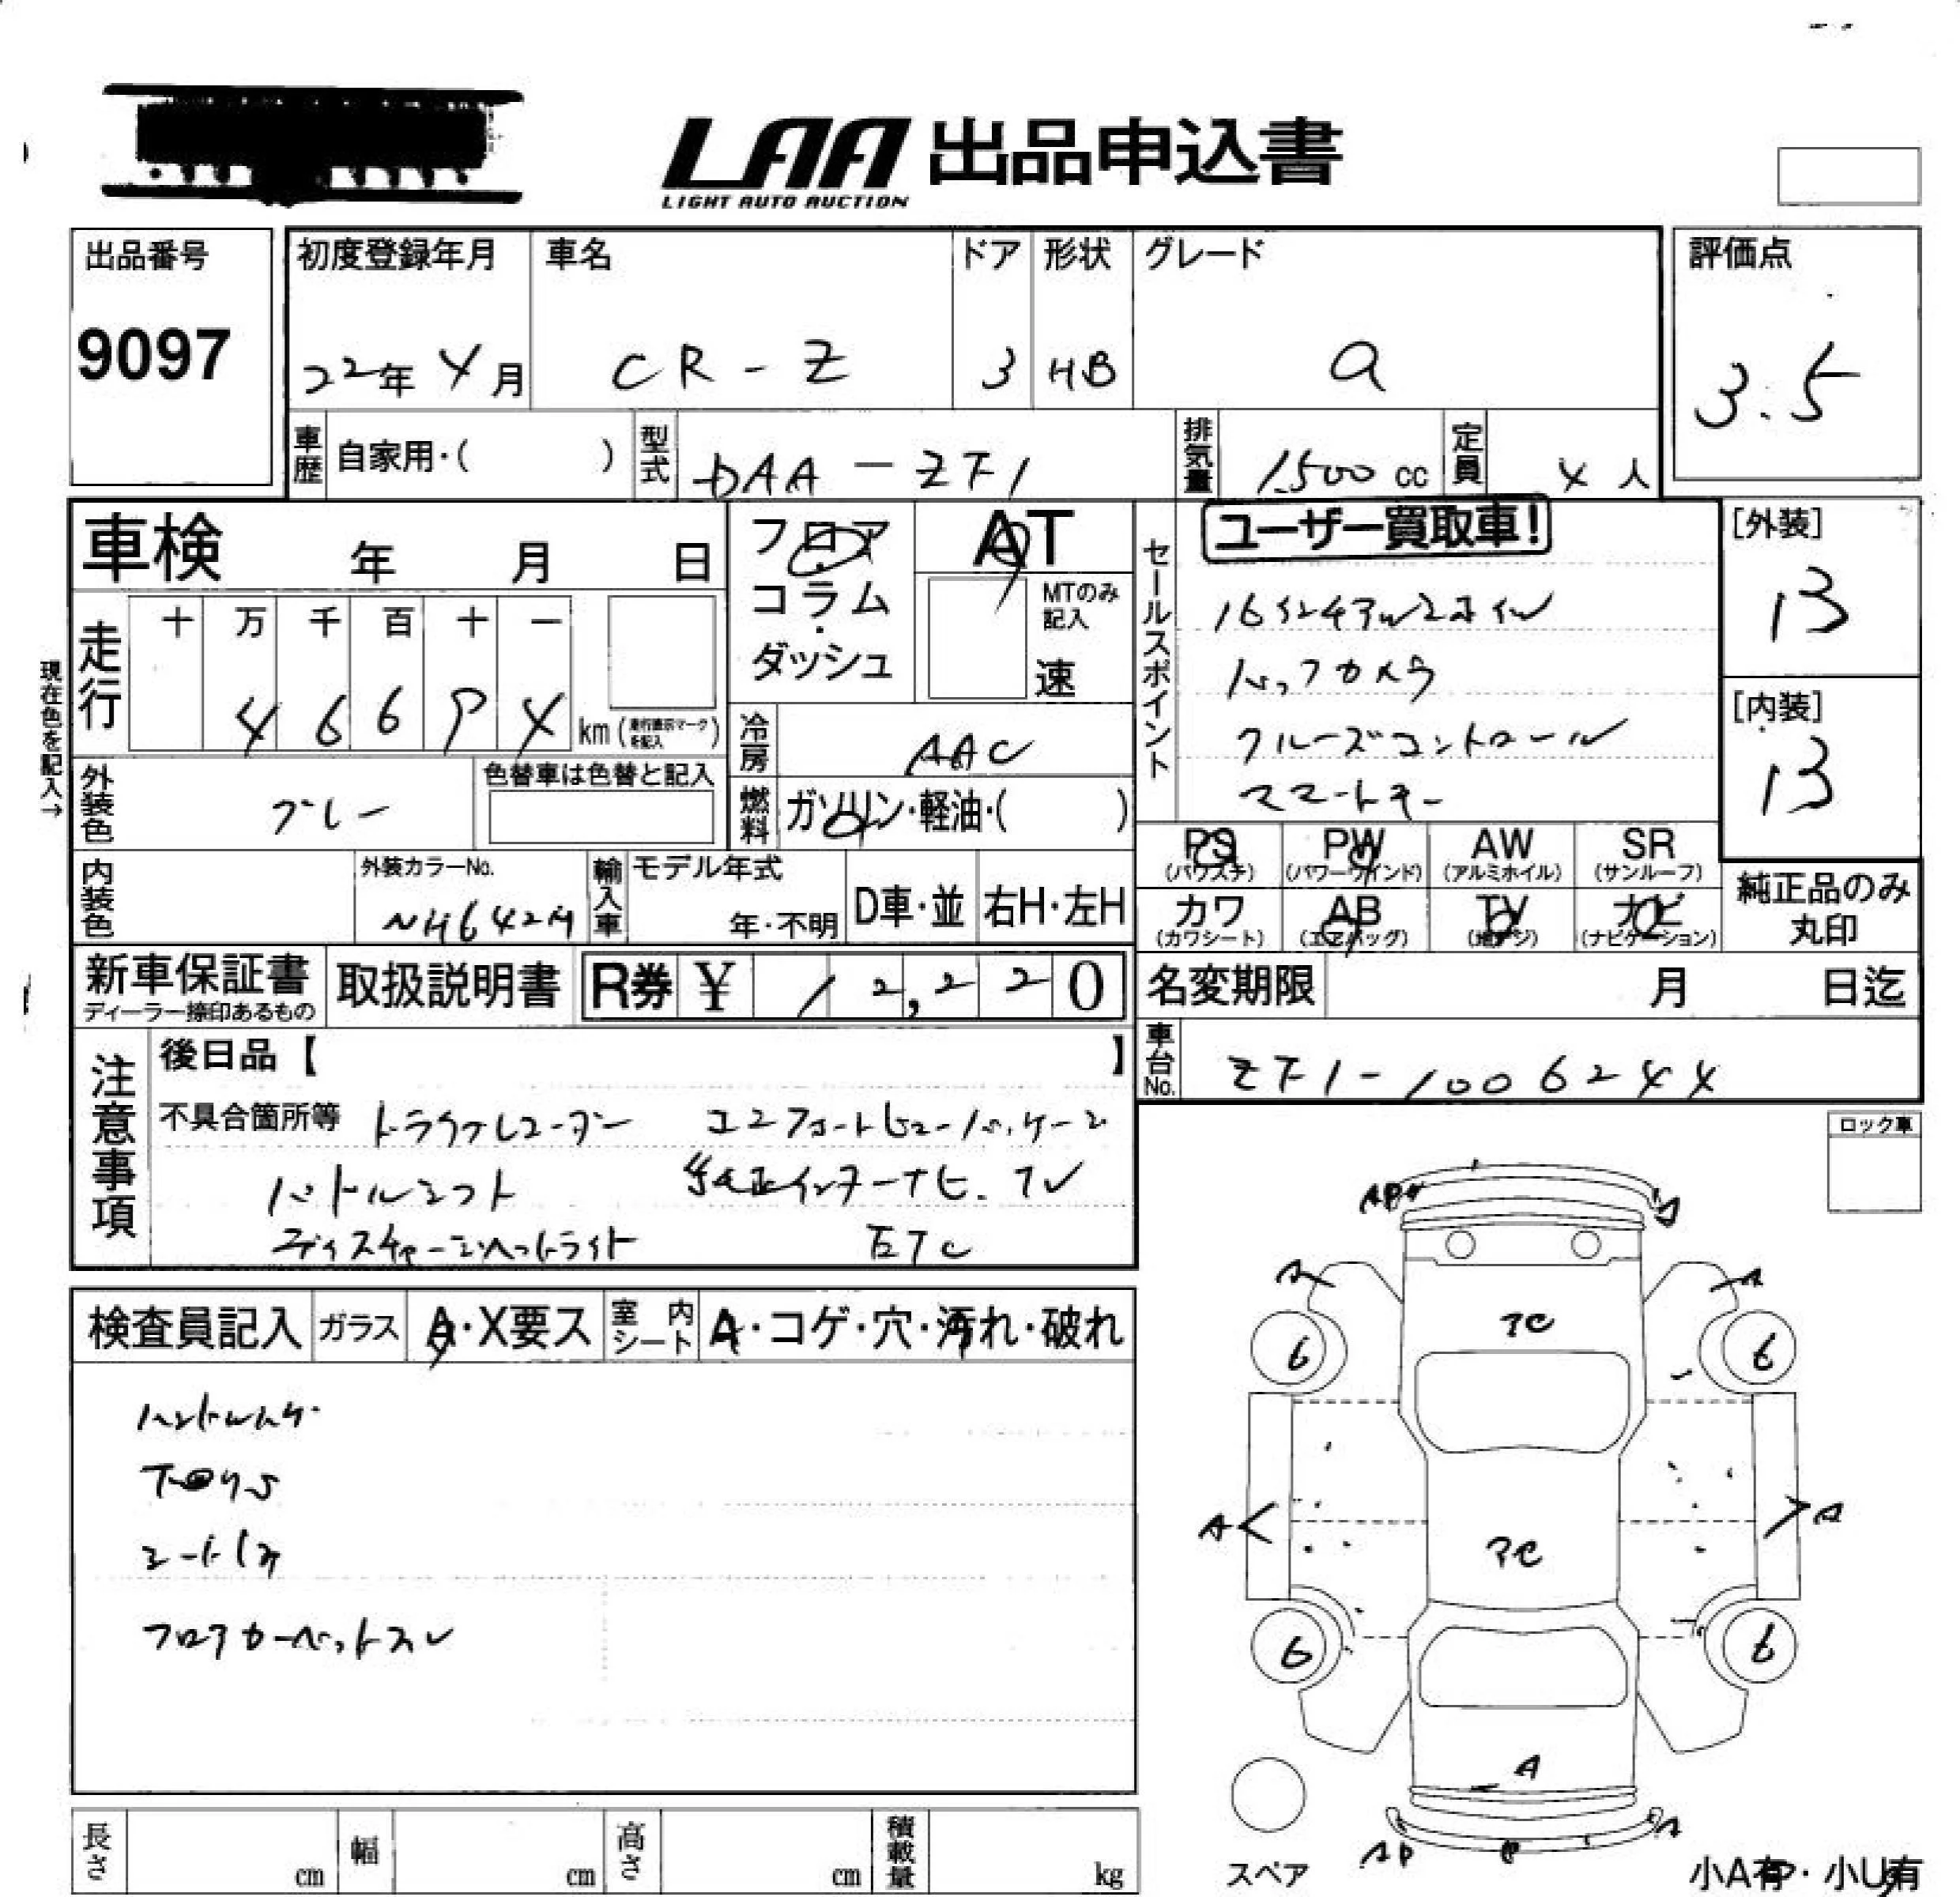 LAA 出品申込書
LIGHT AUTO AUCTION
出品番号
9097
初度登録年月
22年 4月
車名
CR-Z
ドア
3
形状
HB
グレード
α
評価点
3.5
車歴
自家用・( )
型式
DAA-ZF1
排気量
1500 cc
定員
4 人
車検 年 月 日
フロア・コラム・ダッシュ
AT
MTのみ記入
速
セールスポイント
ユーザー買取車!
バックカメラ
クルーズコントロール
スマートキー
[外装]
13
[内装]
13
現在色を記入→
走行
十 万 千 百 十 一
km
冷房
AAC
外装色
グレー
色替車は色替と記入
燃料
ガソリン・軽油・( )
PS
(パワステ)
PW
(パワーウインド)
AW
(アルミホイル)
SR
(サンルーフ)
カワ
(カワシート)
AB
(エアバッグ)
TV
(地デジ)
ナビ
(ナビゲーション)
純正品のみ丸印
内装色
外装カラーNo.
NH642M
輸入車
モデル年式
年・不明
D車・並
右H・左H
新車保証書
ディーラー捺印あるもの
取扱説明書
R券 ¥ 12,220
名変期限 月 日迄
車台No.
ZF1-1006244
注意事項
後日品【 】
不具合箇所等 ドライブレコーダー コンフォートビューパッケージ
パドルシフト 純正インターナビ.TV
ディスチャージヘッドライト ETC
ロック車
検査員記入
ガラス
A・X要ス
室内シート
A・コゲ・穴・汚れ・破れ
フロアカーペットスレ
A
A
A
6
6
A
A
6
6
A
AP
スペア
小A有・小U有
長さ cm
幅 cm
高さ cm
積載量 kg